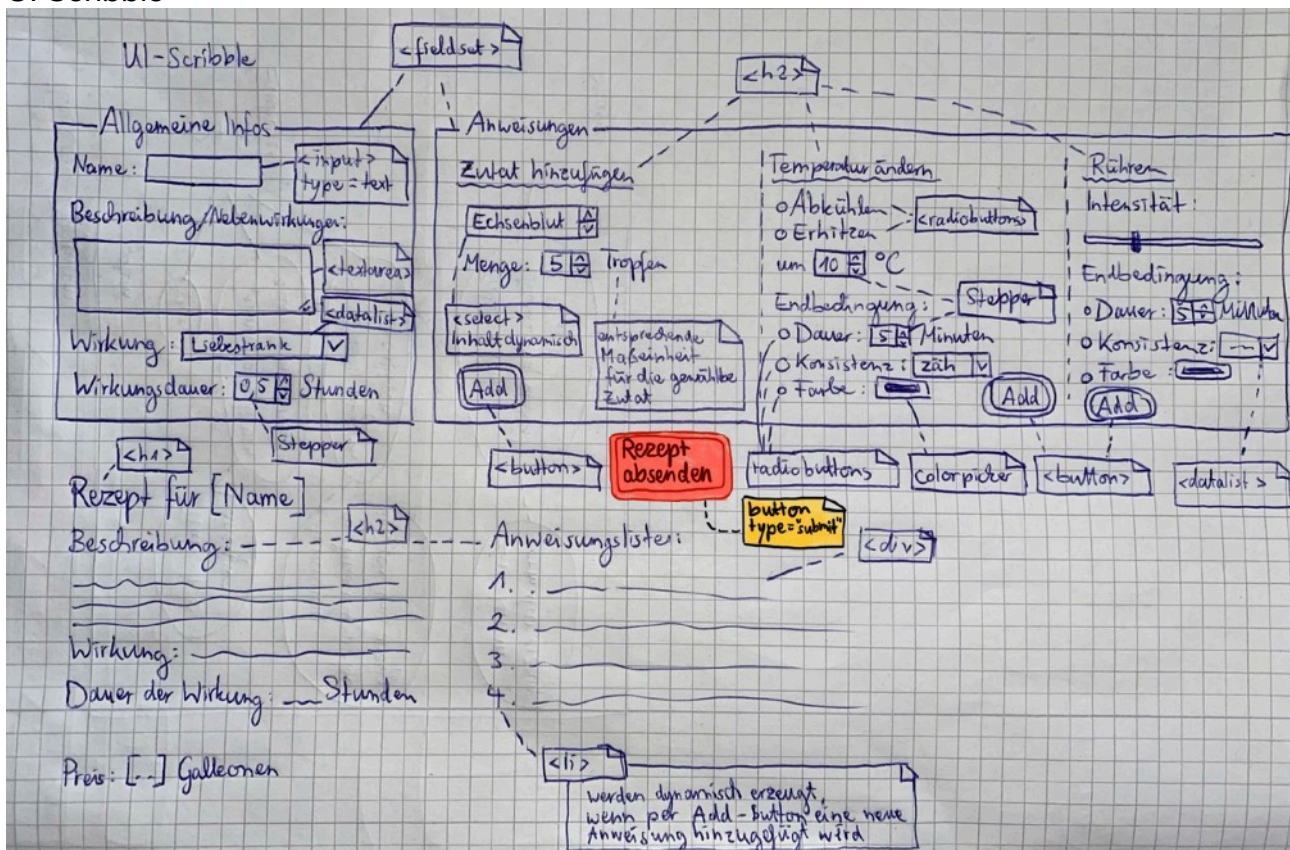 UI-Scribble
UI-Scribble
<fieldset>
<h2>
Allgemeine Infos
Name:
<input>
type=text
Beschreibung/Nebenwirkungen:
<textarea>
<datalist>
Wirkung: Liebestrank
Wirkungsdauer: 0,5 Stunden
Stepper
Anweisungen
Zutat hinzufügen
Echsenblut
Menge: 5 Tropfen
<select>
Inhalt dynamisch
entsprechende
Maßeinheit
für die gewählte
Zutat
Add
<button>
Temperatur ändern
Abkühlen
Erhitzen
<radiobuttons>
um 10 °C
Stepper
Endbedingung:
Dauer: 5 Minuten
Konsistenz: zäh
Farbe:
Add
radiobuttons
Colorpicker
<button>
Rühren
Intensität:
Endbedingung:
Dauer: 5 Minuten
Konsistenz:
Farbe:
Add
<datalist>
Rezept
absenden
button
type="submit"
<h1>
Rezept für [Name]
Beschreibung:
<h2>
Wirkung:
Dauer der Wirkung: __ Stunden
Preis: [--] Galleonen
Anweisungsliste:
<div>
1.
2.
3.
4.
<li>
werden dynamisch erzeugt,
wenn per Add-Button eine neue
Anweisung hinzugefügt wird